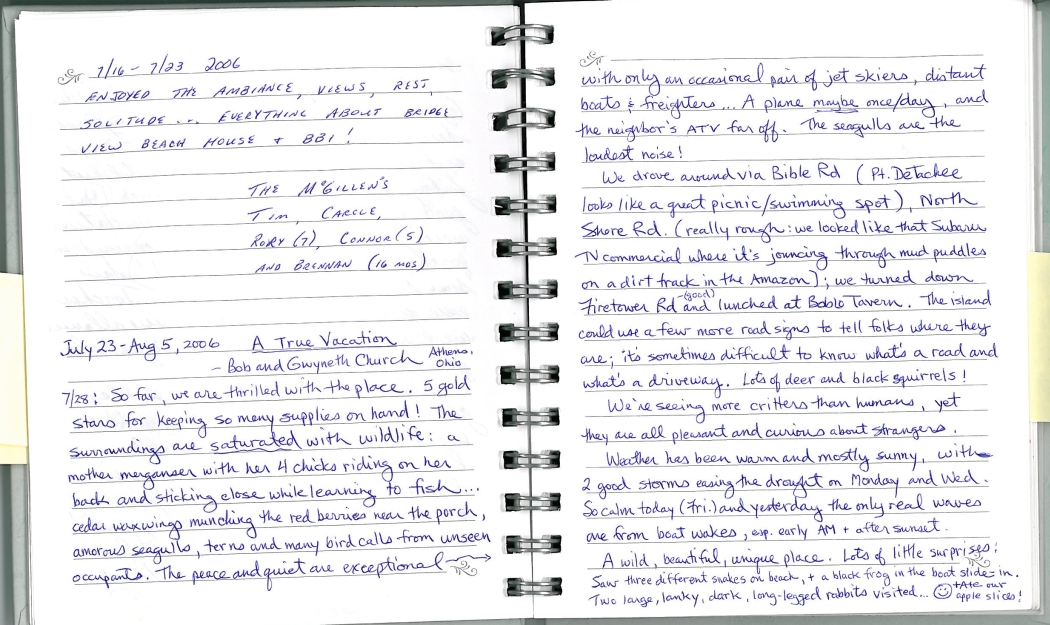 7/16 - 7/23 2006
ENJOYED THE AMBIANCE, VIEWS, REST,
SOLITUDE ... EVERYTHING ABOUT BRIDGE
VIEW BEACH HOUSE + BBI!
THE McGILLEN'S
TIM, CAROLE,
RORY (7), CONNOR (5)
AND BRENNAN (16 MOS)
July 23 - Aug 5, 2006 A True Vacation
- Bob and Gwyneth Church Athens, Ohio
7/28: So far, we are thrilled with the place. 5 gold
stars for keeping so many supplies on hand! The
surroundings are saturated with wildlife: a
mother merganser with her 4 chicks riding on her
back and sticking close while learning to fish...
cedar waxwings munching the red berries near the porch,
amorous seagulls, terns and many bird calls from unseen
occupants. The peace and quiet are exceptional →
with only an occasional pair of jet skiers, distant
boats & freighters... A plane maybe once/day, and
the neighbor's ATV far off. The seagulls are the
loudest noise!
We drove around via Bible Rd (Pt. DeTachee
looks like a great picnic/swimming spot), North
Shore Rd. (really rough: we looked like that Subaru
TV commercial where it's jouncing through mud puddles
on a dirt track in the Amazon); we turned down
Firetower Rd -(good) and lunched at Boblo Tavern. The island
could use a few more road signs to tell folks where they
are; it's sometimes difficult to know what's a road and
what's a driveway. Lots of deer and black squirrels!
We're seeing more critters than humans, yet
they are all pleasant and curious about strangers.
Weather has been warm and mostly sunny, with
2 good storms easing the drought on Monday and Wed.
So calm today (Fri.) and yesterday the only real waves
are from boat wakes, esp. early AM + after sunset.
A wild, beautiful, unique place. Lots of little surprises:
Saw three different snakes on beach, + a black frog in the boat slide-in.
Two large, lanky, dark, long-legged rabbits visited... ☺ + Ate our apple slices!